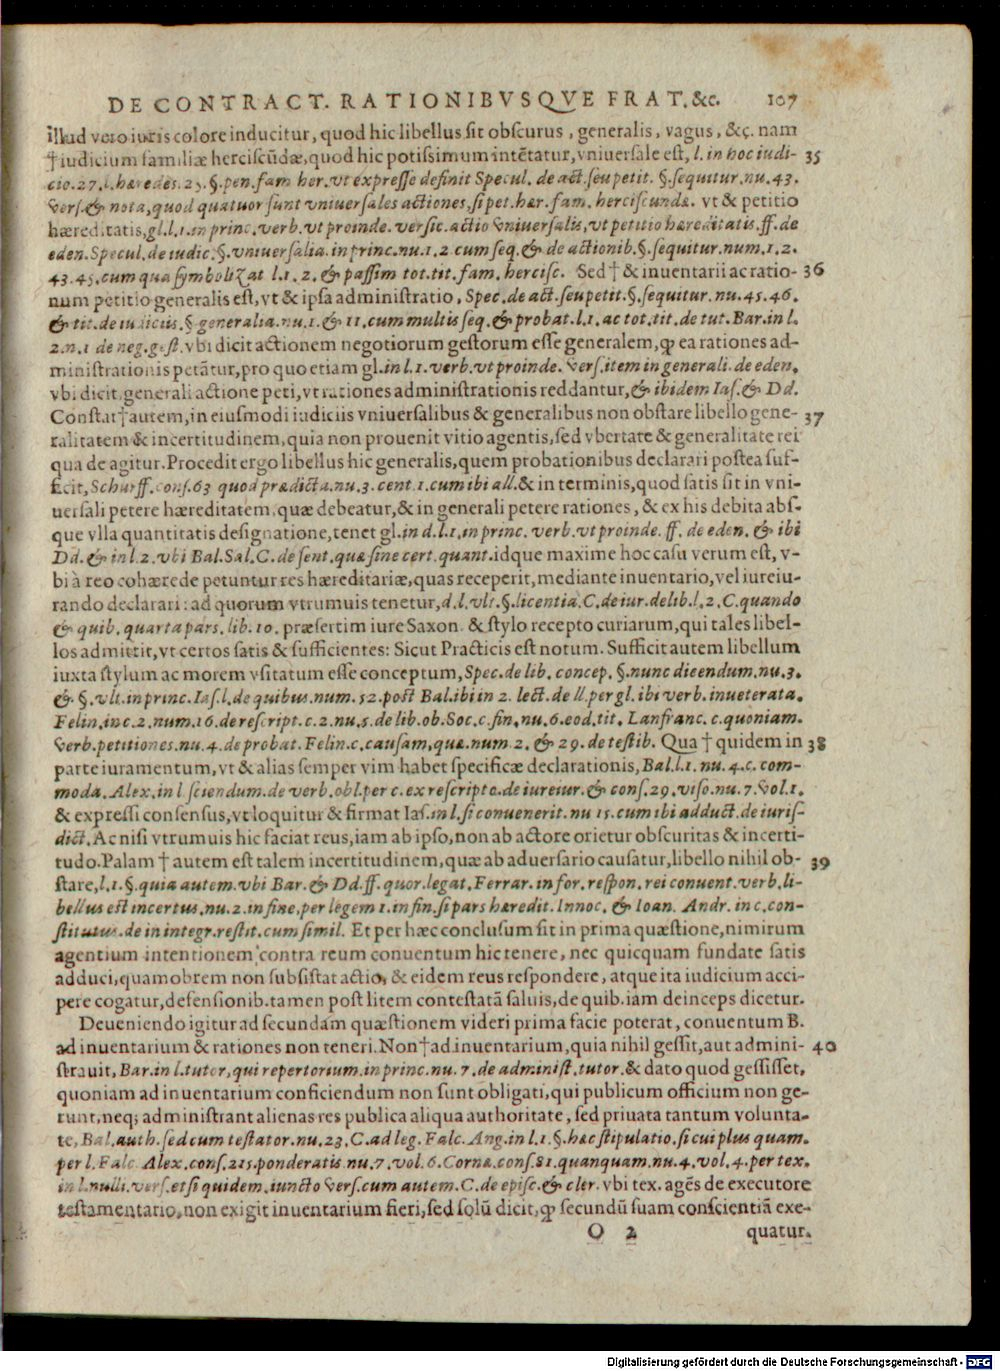 DE CONTRACT. RATIONIBVSQVE FRAT. &c. 107
illud vero iuris colore inducitur, quod hic libellus sit obscurus, generalis, vagus, &ç. nam
†iudicium familiæ herciscūdæ, quod hic potissimum intētatur, vniuersale est, l. in hoc iudi- 35
cio. 27. l. hæredes. 25. §. pen. fam her. vt expresse definit Specul. de act. seu petit. §. sequitur. nu. 43.
vers. & nota, quod quatuor sunt vniuersales actiones, si pet. hær. fam. herciscundæ. vt & petitio
hæreditatis, gl. l. 1. in princ. verb. vt proinde. versic. actio vniuersalis, vt petitio hæreditatis. ff. de
eden. Specul. de iudic. §. vniuersalia. in princ. nu. 1. 2. cum seq. & de actionib. §. sequitur. num. 1. 2.
43. 45. cum qua symbolizat l. 1. 2. & passim tot. tit. fam. hercisc. Sed† & inuentarii ac ratio- 36
num petitio generalis est, vt & ipsa administratio, Spec. de act. seu petit. §. sequitur. nu. 45. 46.
& tit. de iudiciis. § generalia. nu. 1. & 11. cum multis seq. & probat. l. 1. ac tot. tit. de tut. Bar. in l.
2. n. 1 de neg. gest. vbi dicit actionem negotiorum gestorum esse generalem, ꝙ ea rationes ad-
ministrationis petātur, pro quo etiam gl. in l. 1. verb. vt proinde. vers. item in generali. de eden.
vbi dicit, generali actione peti, vt rationes administrationis reddantur, & ibidem Ias. & Dd.
Constat†autem, in eiusmodi iudiciis vniuersalibus & generalibus non obstare libello gene- 37
ralitatem & incertitudinem, quia non prouenit vitio agentis, sed vbertate & generalitate rei
qua de agitur. Procedit ergo libellus hic generalis, quem probationibus declarari postea suf-
ficit, Schurff. cons. 63 quod prædicta. nu. 3. cent. 1. cum ibi all. & in terminis, quod satis sit in vni-
uersali petere hæreditatem, quæ debeatur, & in generali petere rationes, & ex his debita abs-
que vlla quantitatis designatione, tenet gl. in d. l. 1. in princ. verb. vt proinde. ff. de eden. & ibi
Dd. & in l. 2. vbi Bal. Sal. C. de sent. quæ sine cert. quant. idque maxime hoc casu verum est, v-
bi à reo cohærede petuntur res hæreditariæ, quas receperit, mediante inuentario, vel iureiu-
rando declarari: ad quorum vtrumuis tenetur, d. l. vlt. §. licentia. C. de iur. delib. l. 2. C. quando
& quib. quarta pars. lib. 10. præsertim iure Saxon. & stylo recepto curiarum, qui tales libel-
los admittit, vt certos satis & sufficientes: Sicut Practicis est notum. Sufficit autem libellum
iuxta stylum ac morem vsitatum esse conceptum, Spec. de lib. concep. §. nunc dicendum. nu. 3.
& §. vlt. in princ. Ias. l. de quibus. num. 52. post Bal. ibi in 2. lect. de ll. per gl. ibi verb. inueterata.
Felin. in c. 2. num. 16. de rescript. c. 2. nu. 5. de lib. ob. Soc. c. fin. nu. 6. eod. tit. Lanfranc. c. quoniam.
verb. petitiones. nu. 4. de probat. Felin. c. causam, quæ. num 2. & 29. de testib. Qua † quidem in 38
parte iuramentum, vt & alias semper vim habet specificæ declarationis, Bal. l. 1. nu. 4. c. com-
moda. Alex. in l sciendum. de verb. obl. per c. ex rescripto. de iureiur. & cons. 29. viso. nu. 7. vol. 1.
& expressi consensus, vt loquitur & firmat Ias. in l. si conuenerit. nu 15. cum ibi adduct. de iuris-
dict. Ac nisi vtrumuis hic faciat reus, iam ab ipso, non ab actore orietur obscuritas & incerti-
tudo. Palam † autem est talem incertitudinem, quæ ab aduersario causatur, libello nihil ob- 39
stare, l. 1. §. quia autem. vbi Bar. & Dd. ff. quor. legat. Ferrar. in for. respon. rei conuent. verb. li-
bellus est incertus. nu. 2. in fine, per legem 1. in fin. si pars hæredit. Innoc. & Ioan. Andr. in c. con-
stitutus. de in integr. restit. cum simil. Et per hæc conclusum sit in prima quæstione, nimirum
agentium intentionem contra reum conuentum hic tenere, nec quicquam fundate satis
adduci, quamobrem non subsistat actio, & eidem reus respondere, atque ita iudicium acci-
pere cogatur, defensionib. tamen post litem contestatā saluis, de quib. iam deinceps dicetur.
Deueniendo igitur ad secundam quæstionem videri prima facie poterat, conuentum B.
ad inuentarium & rationes non teneri. Non†ad inuentarium, quia nihil gessit, aut admini- 40
strauit, Bar. in l. tutor, qui repertorium. in princ. nu. 7. de administ. tutor. & dato quod gessisset,
quoniam ad inuentarium conficiendum non sunt obligati, qui publicum officium non ge-
runt, neq; administrant alienas res publica aliqua authoritate, sed priuata tantum volunta-
te, Bal. auth. sed cum testator. nu. 23. C. ad leg. Falc. Ang. in l. 1. §. hæc stipulatio. si cui plus quam.
per l. Falc. Alex. cons. 215. ponderatis. nu. 7. vol. 6. Corne. cons. 81. quanquam. nu. 4. vol. 4. per tex.
in l. nulli. vers. et si quidem. iuncto vers. cum autem. C. de episc. & cler. vbi tex. agēs de executore
testamentario, non exigit inuentarium fieri, sed solū dicit, ꝙ secundū suam conscientiā exe-
O 2 quatur.
Digitalisierung gefördert durch die Deutsche Forschungsgemeinschaft - DFG